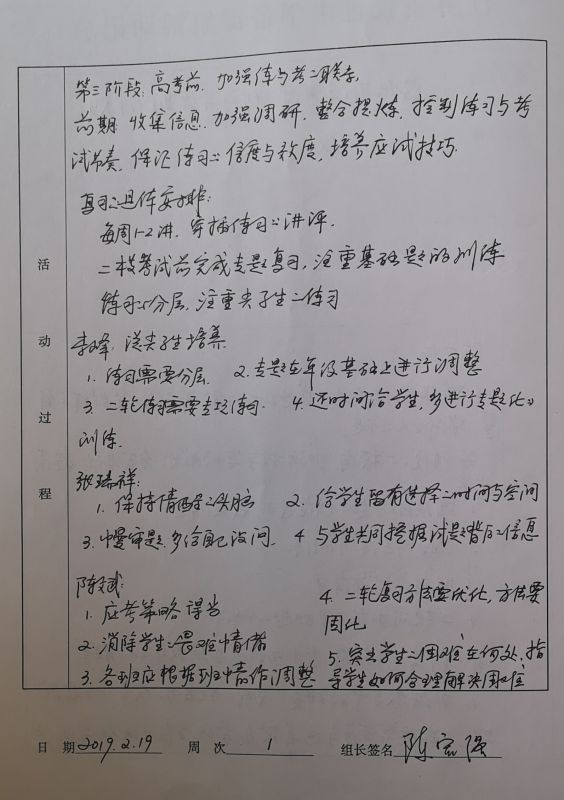 第三阶段,高考前,加强练与考的联系,
前期 收集信息,加强调研,整合提炼,控制练习与考
试节奏,保证练习的信度与效度,培养应试技巧.
复习的具体安排:
每周1-2讲,穿插练习的讲评.
二枝考试前完成专题复习,注重基础题的训练
练习的分层,注重尖子生的练习
李峰,谈尖子生培养
1. 练习需要分层. 2. 专题在年级基础上进行调整
3. 二轮练习需要专项练习. 4. 还时间给学生,多进行专题化的
训练.
张瑞祥:
1. 保持清醒的头脑 2. 给学生留有选择的时间与空间
3. 慢审题,多给自己设问. 4 与学生共同挖掘试题背后的信息
陈文斌:
1. 应考策略得当
2. 消除学生的畏难情绪
3. 各班应根据班情作调整
4. 二轮复习方法要优化,方法要
固化
5. 突出学生的困难在何处,指
导学生如何合理解决困难
活
动
过
程
日 期 2019.2.19 周 次 1 组长签名 陈宏强